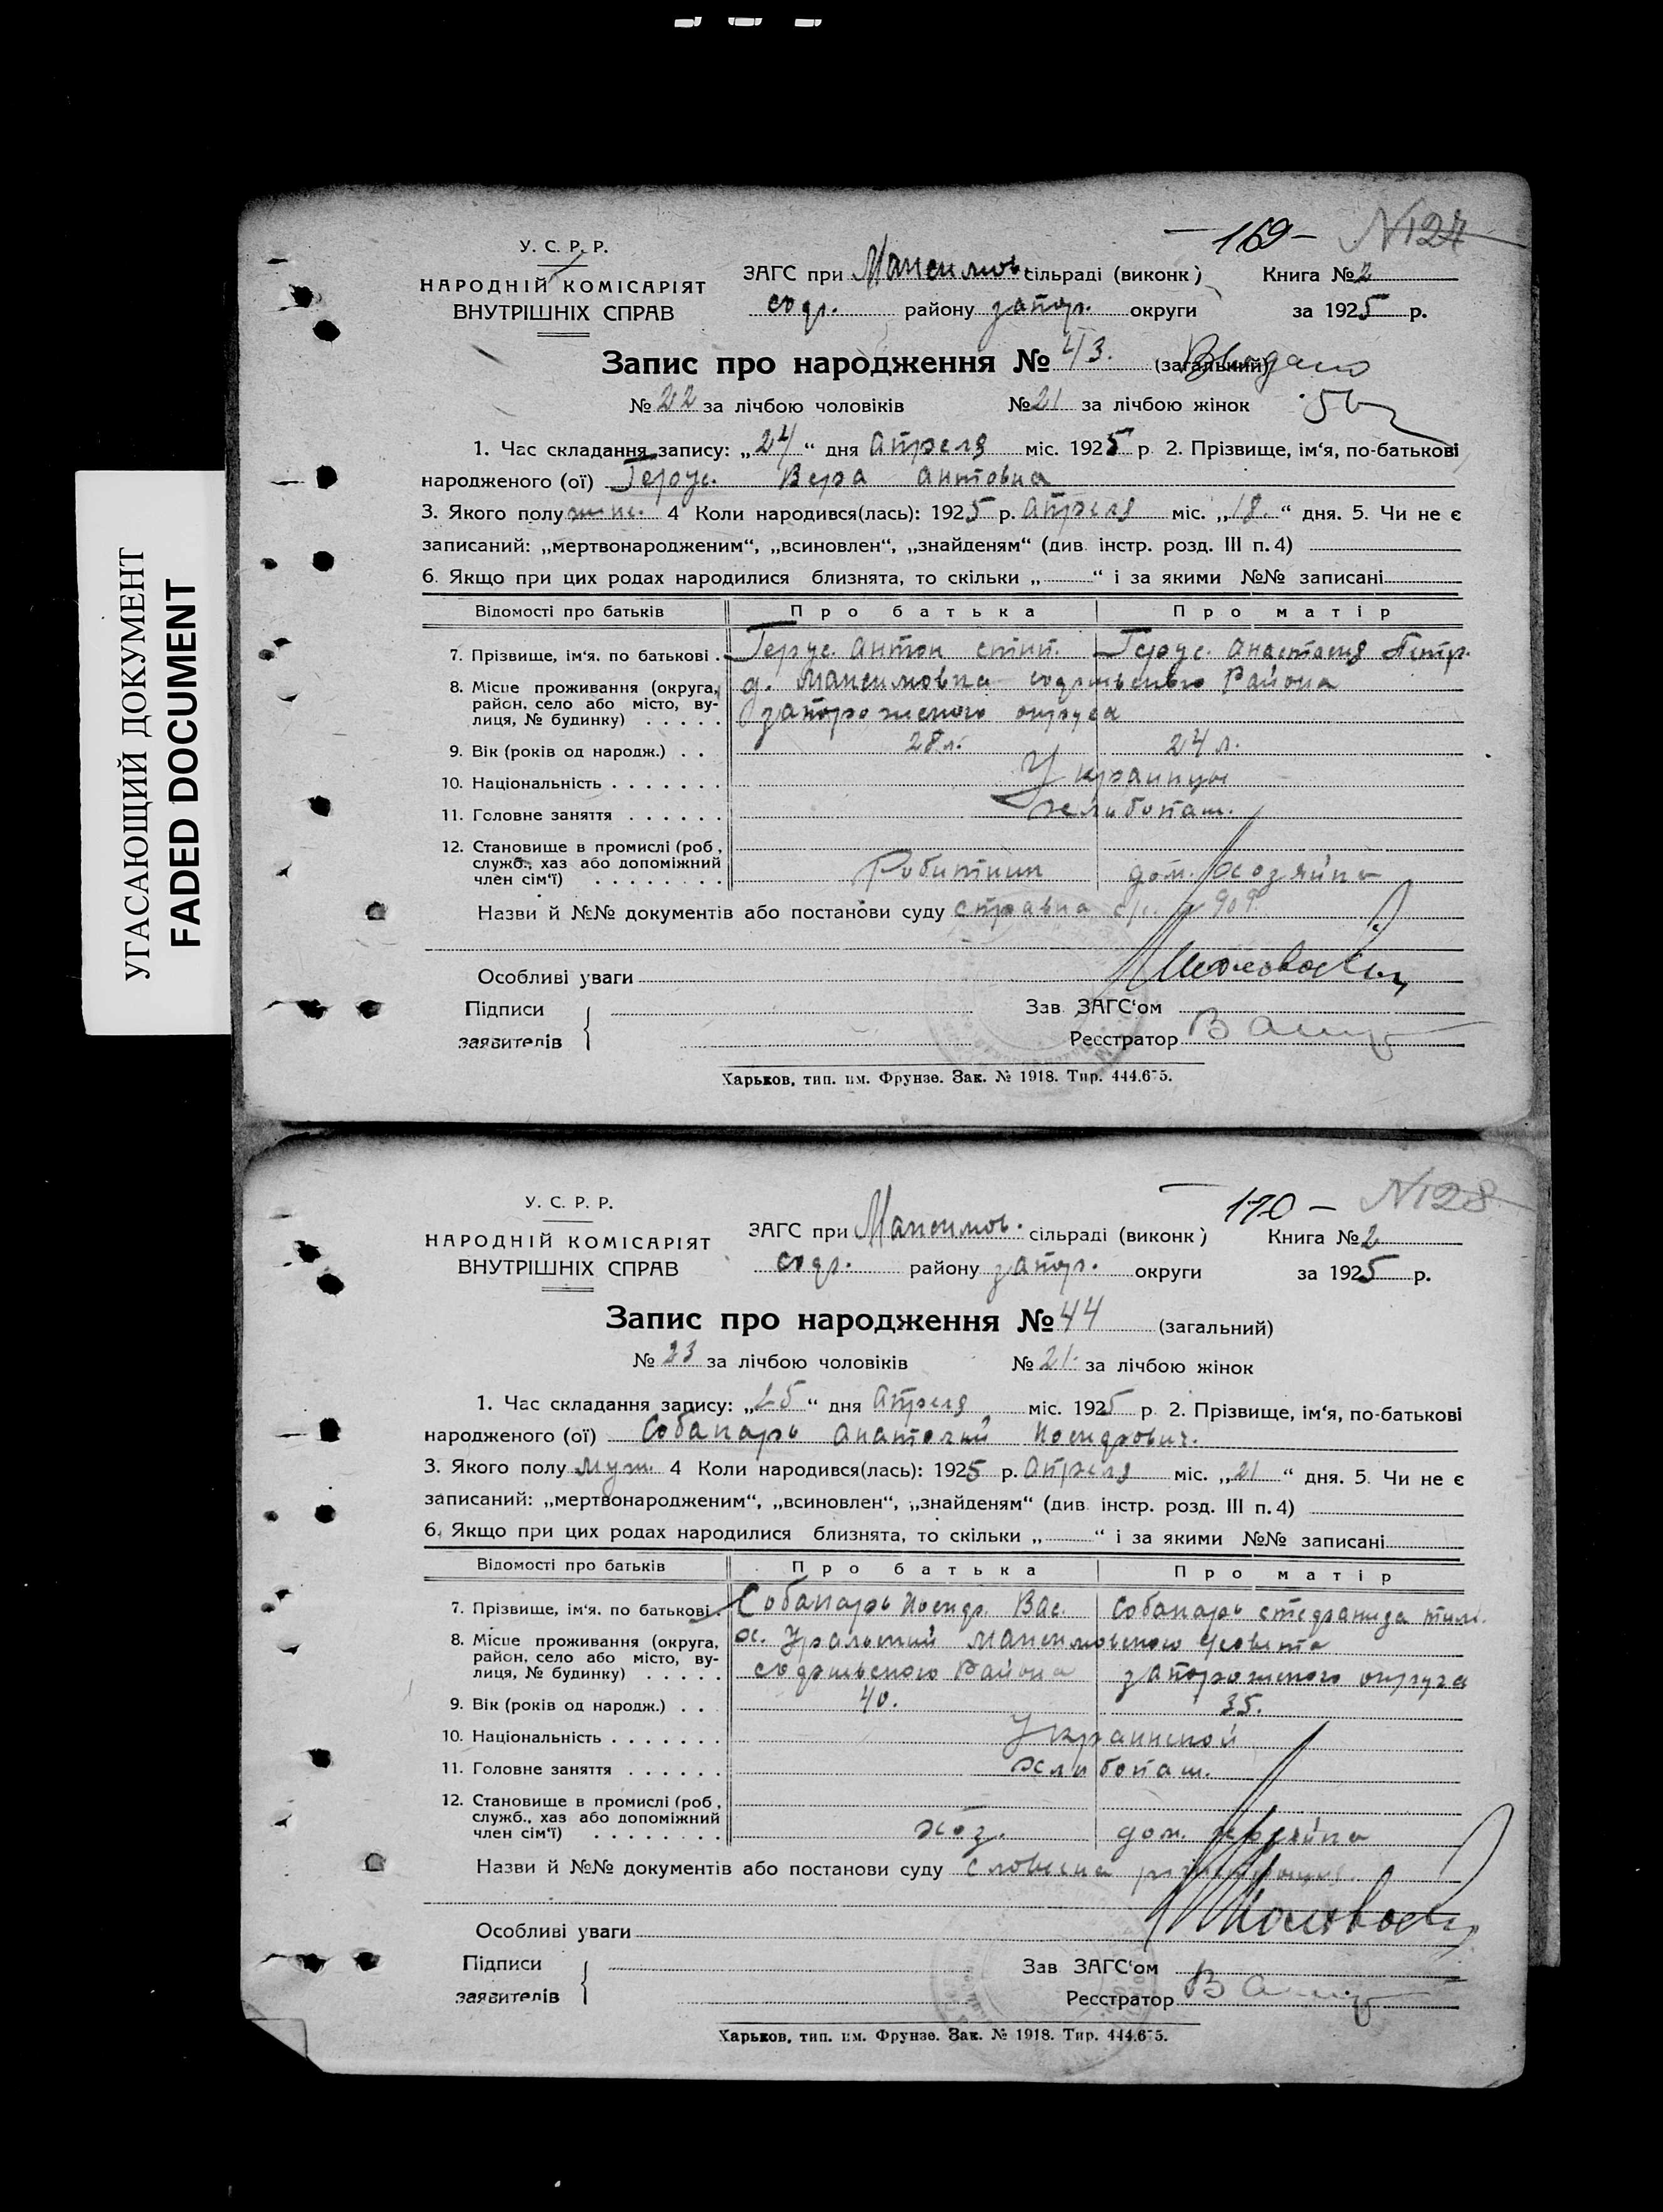 УГАСАЮЩИЙ ДОКУМЕНТ
FADED DOCUMENT
— 169 — N127
У. С. Р. Р.
НАРОДНІЙ КОМІСАРІЯТ
ВНУТРІШНІХ СПРАВ
ЗАГС при Максимов. сільраді (виконк) Книга № 2
софр. району запор. округи за 1925 р.
Запис про народження № 43. (загальний) Видано
№ 22 за лічбою чоловіків № 21 за лічбою жінок
1. Час складання запису: „24“ дня Апреля міс. 1925 р 2. Прізвище, ім‘я, по-батькові
народженого (ої) Герус. Вера Антовна
3. Якого полу жин. 4 Коли народився(лась): 1925 р. Апреля міс. „18.“ дня. 5. Чи не є
записаний: „мертвонародженим“, „всиновлен“, „знайденям“ (див. інстр. розд. III п. 4)
6. Якщо при цих родах народилися близнята, то скільки „ “ і за якими №№ записані
Відомості про батьків Про батька Про матір
7. Прізвище, ім‘я. по батькові . Герус. Антон Степ. Герус. Анастасия Петр.
8. Місце проживання (округа, район, село або місто, вулиця, № будинку) . . . . . д. Максимовка Района
запорожского округа
9. Вік (років од народж.) . . 28 л. 24 л.
10. Національність . . . . . . . Украинцы
11. Головне заняття . . . . . . хлибопаш.
12. Становище в промислі (роб, служб., хаз або допоміжний член сім‘ї) . . . . . . . . Робитник дом. хозяйка
Назви й №№ документів або постанови суду справка с/с. № 909.
Особливі уваги
Підписи
заявителів
Зав ЗАГС‘ом
Реєстратор
Харьков, тип. им. Фрунзе. Зак. № 1918. Тир. 444.675.
— 170 — N128
У. С. Р. Р.
НАРОДНІЙ КОМІСАРІЯТ
ВНУТРІШНІХ СПРАВ
ЗАГС при Максимов. сільраді (виконк) Книга № 2
софр. району запор. округи за 1925 р.
Запис про народження № 44 (загальний)
№ 23 за лічбою чоловіків № 21. за лічбою жінок
1. Час складання запису: „25“ дня Апреля міс. 1925 р 2. Прізвище, ім‘я, по-батькові
народженого (ої) Собакарь Анатолий
3. Якого полу муж. 4 Коли народився(лась): 1925 р. Апреля міс. „21“ дня. 5. Чи не є
записаний: „мертвонародженим“, „всиновлен“, „знайденям“ (див. інстр. розд. III п. 4)
6. Якщо при цих родах народилися близнята, то скільки „ “ і за якими №№ записані
Відомості про батьків Про батька Про матір
7. Прізвище, ім‘я. по батькові . Собакарь Вас. Собакарь Тим.
8. Місце проживання (округа, район, село або місто, вулиця, № будинку) . . . . . х. Уральский Максимовского
Района запорожского округа
9. Вік (років од народж.) . . 40. 35.
10. Національність . . . . . . . Украинской
11. Головне заняття . . . . . . хлибопаш.
12. Становище в промислі (роб, служб., хаз або допоміжний член сім‘ї) . . . . . . . . хоз. дом. хозяйка
Назви й №№ документів або постанови суду
Особливі уваги
Підписи
заявителів
Зав ЗАГС‘ом
Реєстратор
Харьков, тип. им. Фрунзе. Зак. № 1918. Тир. 444.675.